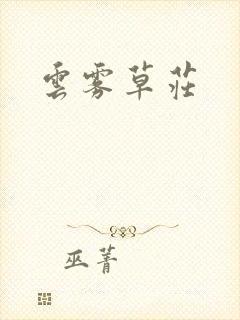 雲雾草莊
巫菁